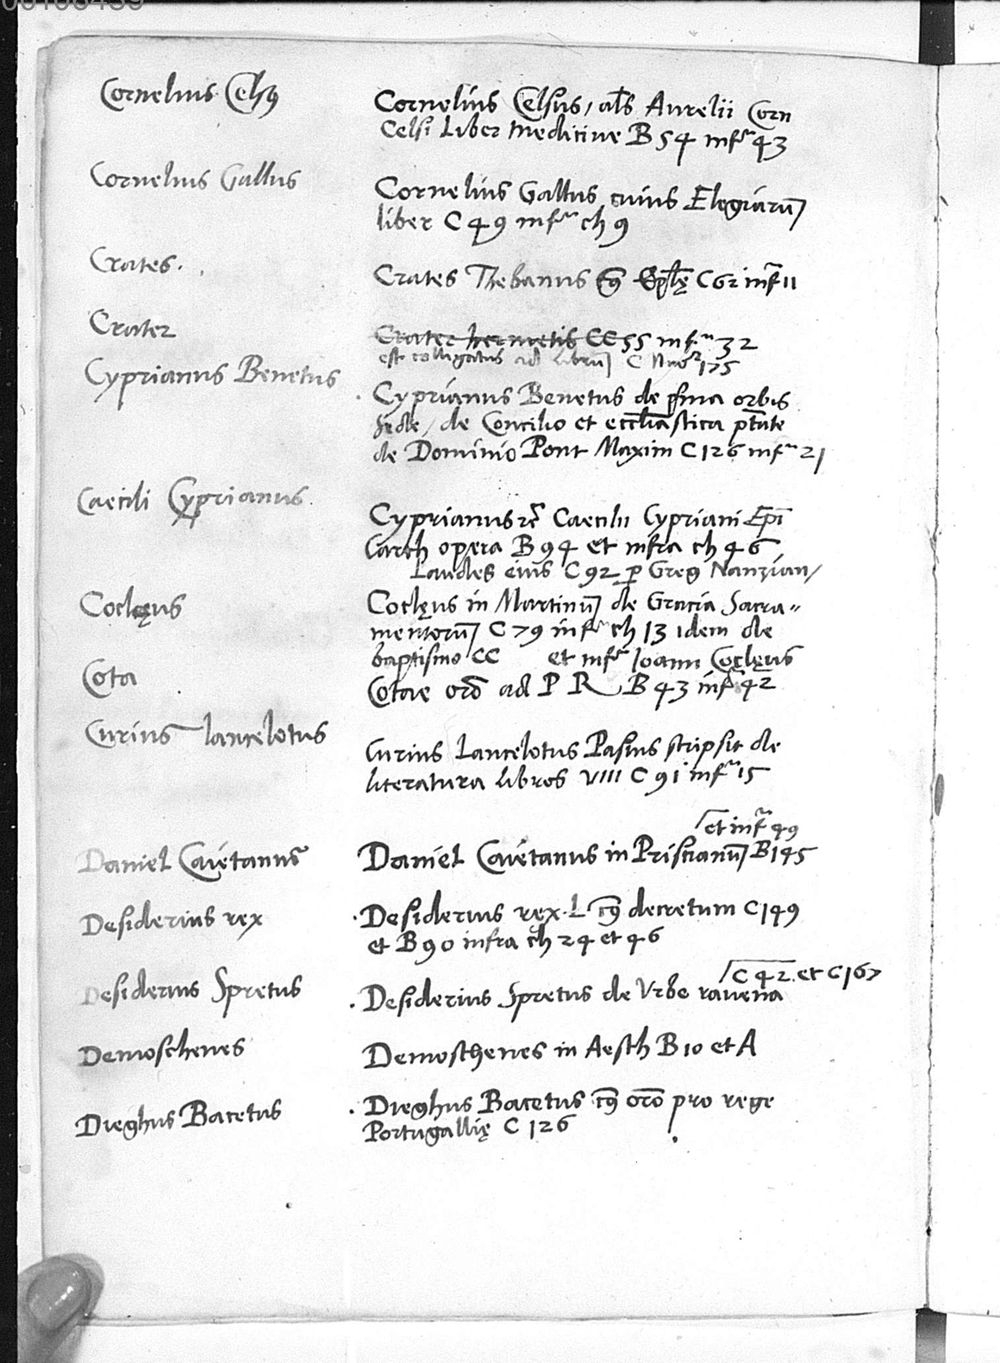 Cornelius Celsꝰ
Cornelius Celsus / al̅s Aurelii Corn
Celsi Liber medicine B 54 infra 43
Cornelius Gallus
Cornelius Gallus cuius Elegiaru̅
liber C 49 infra ch 9
Crates.
Crates Thebanus cꝰ Ep̅lę C 62 infra 11
Crater
Crater hermetis CC 55 infra 32
est colligatus ad libru̅ C 175
Cyprianus Benetus
Cyprianus Benetus de p̅ma orbis
sede / de Concilio et eccl̅iastica pt̅ate
de Dominio Pont Maxim C 126 infra 21
Caecili Cyprianus
Cyprianus Caecilii Cypriani Ep̅i
Carth opera B 94 et infra ch 46
Laudes eius C 92 ꝑ Greg Nanzian /
Coclęus
Coclęus in Martinu̅ de Gracia Sacra=
mentoru̅ C 79 infra ch 13 idem de
baptismo CC et infra Joann Coclęus
Cota
Cotae or̅o ad P R B 43 infra 42
Curius lancelotus
Curius Lancelotus Pasius scripsit de
literatura libros VIII C 91 infra 15
et infra 49
Daniel Caietanus
Daniel Caietanus in Priscianu̅ B 145
Desiderius rex
Desiderius rex. L cꝰ decretum C 149
et B 90 infra ch 24 et 46
C 42. et C 167
Desiderius Spretus
Desiderius Spretus de Vrbe rauena
Demosthenes
Demosthenes in Aesch B 10 et A
Dieghus Bacetus
Dieghus Bacetus cꝰ or̅o pro rege
Portugallię C 126